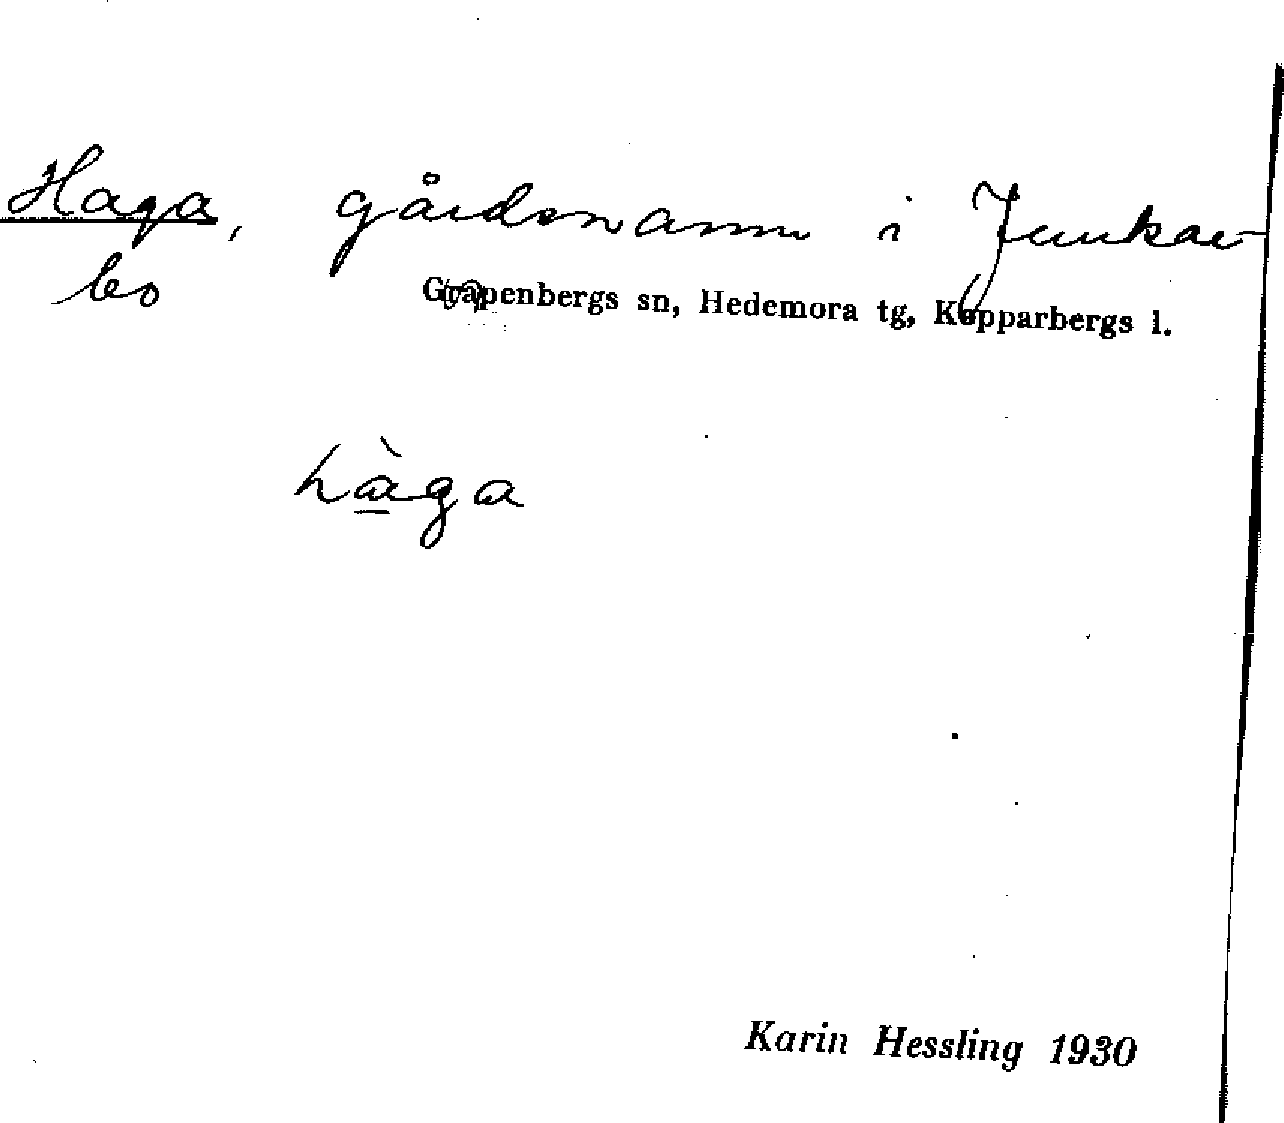 Haga, gårdsnamn i Junkar-
bo
Garpenbergs sn, Hedemora tg, Kopparbergs l.
hàga
Karin Hessling 1930